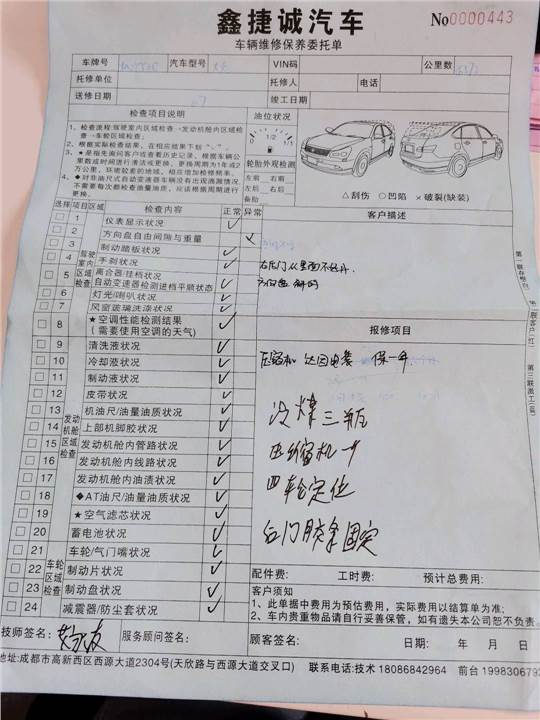 鑫捷诚汽车
No0000443
车辆维修保养委托单
车牌号 汽车型号 VIN码 公里数
托修单位 托修人 电话
送修日期 竣工日期
检查项目说明 油位状况
1、检查流程:驾驶室内区域检查→发动机舱内区域检查→车轮区域检查;
2、根据实际检查结果,在相应结果下划"√"。
3、★是指先询问客户或查看历史记录,根据车辆公里数或时间进行清洁或更换,更换周期为1年或2万公里,环境较差的地域,相应增加检修频率。
4、◆对非油尺式自动变速器车辆没有出现渗漏情况不需要每次都检查油量油质,应该根据周期进行更换。
0 1/2 1/1
轮胎外观检测
左前 右前
左后 右后
备胎
△刮伤 ○凹陷 ×破裂(缺装)
选择 项目区域 检查内容 正常 异常 客户描述
驾驶室内区域检查
1 仪表显示状况 √
2 方向盘自由间隙与重量
3 制动踏板状况 √
4 手刹状况 √
5 离合器/挂档状况
自动变速器检测进档平顺状态 √
6 灯光/喇叭状况 √
7 风窗玻璃洗涤状况 √
8 ★空调性能检测结果
(需要使用空调的天气) √
右后门从里面不能开
方向盘
报修项目
发动机舱区域检查
9 清洗液状况 √
10 冷却液状况 √
11 制动液状况 √
12 皮带状况 √
13 机油尺/油量油质状况 √
14 上部机脚胶状况 √
15 发动机舱内管路状况 √
16 发动机舱内线路状况 √
17 发动机舱内油渍状况 √
18 ◆AT油尺/油量油质状况 √
19 ★空气滤芯状况 √
20 蓄电池状况 √
压缩机 保一年
冷煤三瓶
压缩机一个
四轮定位
后门 固定
车轮区域检查
21 车轮/气门嘴状况 √
22 制动片状况 √
23 制动盘状况 √
24 减震器/防尘套状况 √
配件费: 工时费: 预计总费用:
客户须知
1、此单据中费用为预估费用,实际费用以结算单为准;
2、车内贵重物品请自行妥善保管,如有遗失本公司恕不负责。
技师签名: 服务顾问签名: 顾客签名: 日期: 年 月 日
地址:成都市高新西区西源大道2304号(天欣路与西源大道交叉口) 联系电话:技术 18086842964 前台